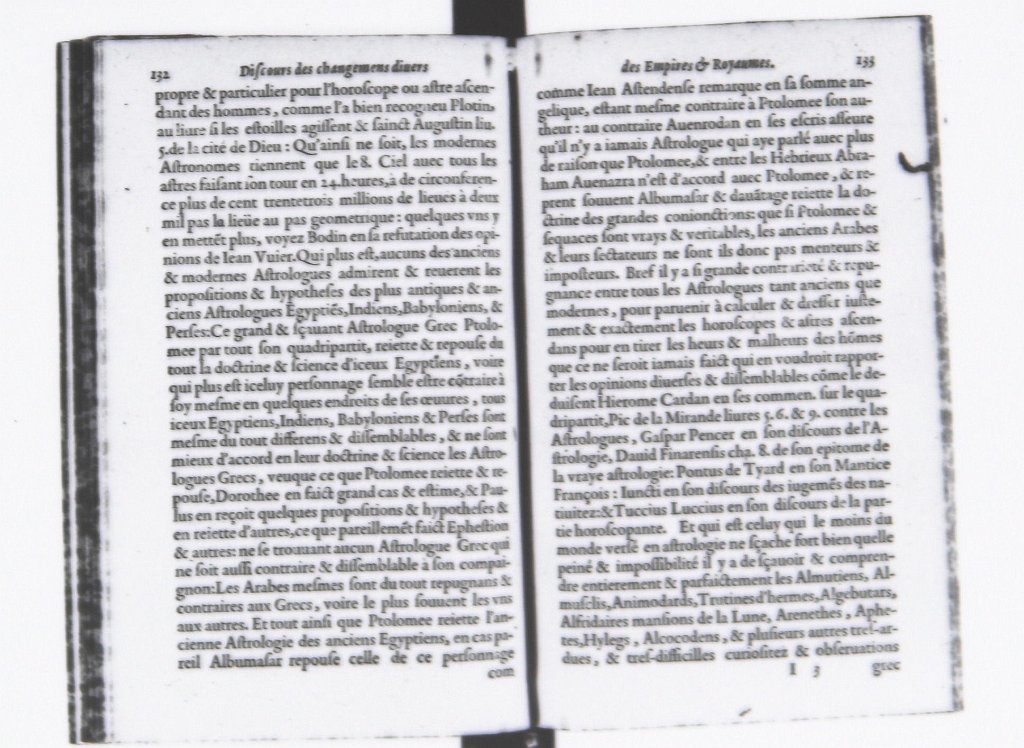 132 Diſcours des changemens diuers
propre & particulier pour l'horoſcope ou aſtre aſcen-
dant des hommes, comme l'a bien recogneu Plotin,
au liure ſi les eſtoilles agiſſent & ſainct Auguſtin liu.
5.de la cité de Dieu : Qu'ainſi ne ſoit, les modernes
Aſtronomes tiennent que le 8. Ciel auec tous les
aſtres faiſant ſon tour en 24.heures,à de circonferen-
ce plus de cent trentetrois millions de lieues à deux
mil pas la lieüe au pas geometrique : quelques vns y
en mettēt plus, voyez Bodin en ſa refutation des opi-
nions de Iean Vuier.Qui plus eſt,aucuns des anciens
& modernes Aſtrologues admirent & reuerent les
propoſitions & hypotheſes des plus antiques & an-
ciens Aſtrologues Egyptiēs,Indiens,Babyloniens, &
Perſes:Ce grand & ſçauant Aſtrologue Grec Ptolo-
mee par tout ſon quadripartit, reiette & repouſe du
tout la doctrine & ſcience d'iceux Egyptiens, voire
qui plus eſt iceluy perſonnage ſemble eſtre cōtraire à
ſoy meſme en quelques endroits de ſes œuures, tous
iceux Egyptiens,Indiens, Babyloniens & Perſes ſont
meſme du tout differens & diſſemblables, & ne ſont
mieux d'accord en leur doctrine & ſcience les Aſtro-
logues Grecs, veuque ce que Ptolomee reiette & re-
pouſe,Dorothee en faict grand cas & eſtime,& Pau-
lus en reçoit quelques propoſitions & hypotheſes &
en reiette d'autres,ce que pareillemēt faict Epheſtion
& autres: ne ſe trouuant aucun Aſtrologue Grec qui
ne ſoit auſſi contraire & diſſemblable à ſon compai-
gnon:Les Arabes meſmes ſont du tout repugnans &
contraires aux Grecs, voire le plus ſouuent les vns
aux autres. Et tout ainſi que Ptolomee reiette l'an-
cienne Aſtrologie des anciens Egyptiens, en cas pa-
reil Albumaſar repouſe celle de ce perſonnage
com
des Empires & Royaumes. 133
comme Iean Aſtendenſe remarque en ſa ſomme an-
gelique, eſtant meſme contraire à Ptolomee ſon au-
theur : au contraire Auenrodan en ſes eſcris aſſeure
qu'il n'y a iamais Aſtrologue qui aye parlé auec plus
de raiſon que Ptolomee,& entre les Hebrieux Abra-
ham Auenazra n'eſt d'accord auec Ptolomee, & re-
prent ſouuent Albumaſar & dauātage reiette la do-
ctrine des grandes conionctions: que ſi Ptolomee &
ſequaces ſont vrays & veritables, les anciens Arabes
& leurs ſectateurs ne ſont ils donc pas menteurs &
impoſteurs. Bref il y a ſi grande contrarieté & repu-
gnance entre tous les Aſtrologues tant anciens que
modernes, pour paruenir à calculer & dreſſer iuſte-
ment & exactement les horoſcopes & aſtres aſcen-
dans pour en tirer les heurs & malheurs des hōmes
que ce ne ſeroit iamais faict qui en voudroit rappor-
ter les opinions diuerſes & diſſemblables cōme le de-
duiſent Hierome Cardan en ſes commen. ſur le qua-
dripartit,Pic de la Mirande liures 5. 6. & 9. contre les
Aſtrologues, Gaſpar Pencer en ſon diſcours de l'A-
ſtrologie, Dauid Finarenſis cha. 8. de ſon epitome de
la vraye aſtrologie: Pontus de Tyard en ſon Mantice
François : Iuncti en ſon diſcours des iugemēs des na-
tiuitez:& Tuccius Luccius en ſon diſcours de la par-
tie horoſcopante. Et qui eſt celuy qui le moins du
monde verſé en aſtrologie ne ſçache fort bien quelle
peine & impoſſibilité il y a de ſçauoir & compren-
dre entierement & parfaictement les Almutiens, Al-
muſclis,Animodards,Trutines d'hermes,Algebutars,
Alfridaires manſions de la Lune, Arenethes, Aphe-
tes,Hylegs, Alcocodens, & pluſieurs autres treſ-ar-
dues, & treſ-difficilles curioſitez & obſeruations
I 3 grec